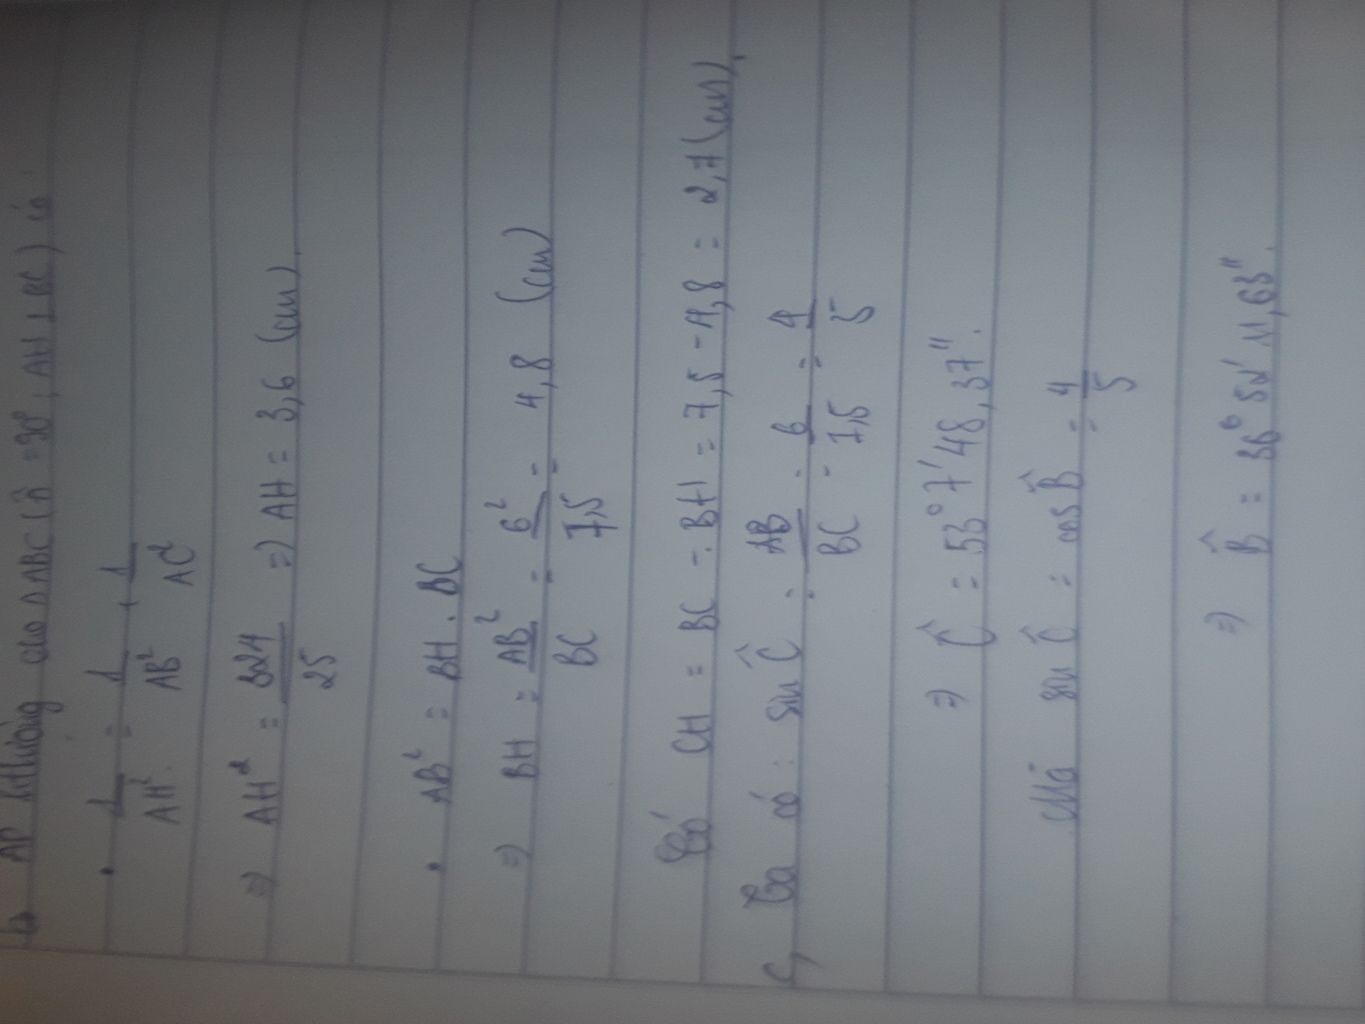 b, AD hthưởng cho ΔABC (Â = 90°, AH ⊥ BC) có
• 1/AH² = 1/AB² + 1/AC²
⇒ AH² = 324/25 ⇒ AH = 3,6 (cm).
• AB² = BH . BC
⇒ BH = AB²/BC = 6²/7,5 = 4,8 (cm)
Có CH = BC - BH = 7,5 - 4,8 = 2,7 (cm).
c, Ta có : sin Ĉ = AB/BC = 6/7,5 = 4/5
⇒ Ĉ = 53° 7' 48,37''.
Mà sin Ĉ = cos B̂ = 4/5
⇒ B̂ = 36° 52' 11,63''.